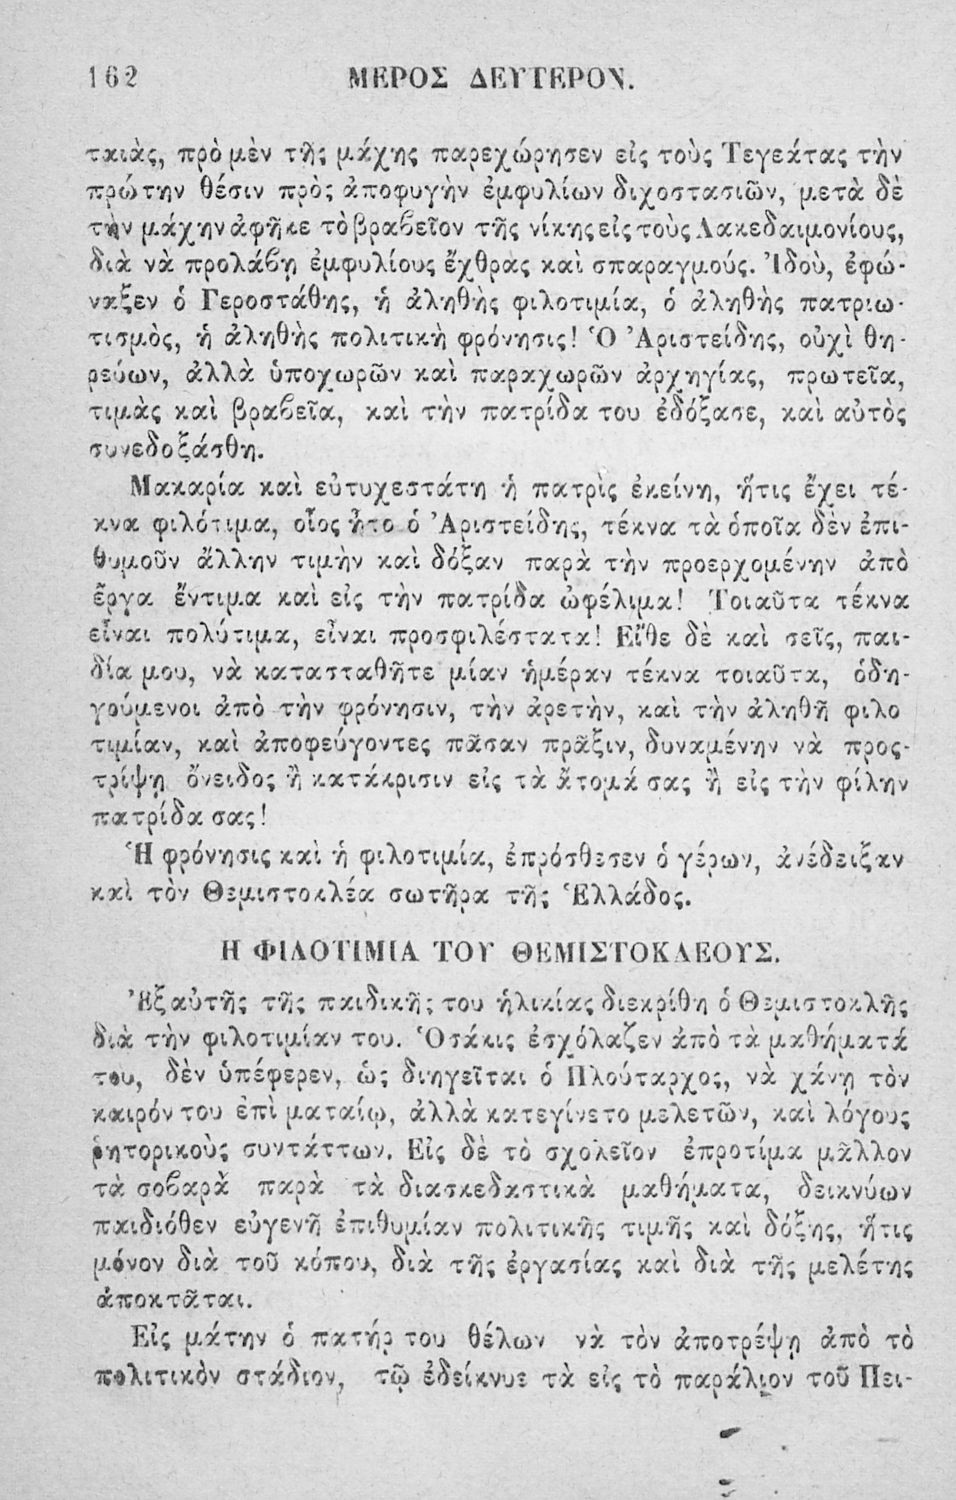 162 ΜΕΡΟΣ ΔΕΥΤΕΡΟΝ.
ταιὰς, πρὸ μὲν τῆς μάχης παρεχώρησεν εἰς τοὺς Τεγεάτας τὴν
πρώτην θέσιν πρὸς ἀποφυγὴν ἐμφυλίων διχοστασιῶν, μετὰ δὲ
τὴν μάχην ἀφῆκε τὸ βραβεῖον τῆς νίκης εἰς τοὺς Λακεδαιμονίους,
διὰ νὰ προλάβῃ ἐμφυλίους ἔχθρας καὶ σπαραγμούς. Ἰδοὺ, ἐφώ-
ναξεν ὁ Γεροστάθης, ἡ ἀληθὴς φιλοτιμία, ὁ ἀληθὴς πατριω-
τισμὸς, ἡ ἀληθὴς πολιτικὴ φρόνησις! Ὁ Ἀριστείδης, οὐχὶ θη-
ρεύων, ἀλλὰ ὑποχωρῶν καὶ παραχωρῶν ἀρχηγίας, πρωτεῖα,
τιμὰς καὶ βραβεῖα, καὶ τὴν πατρίδα του ἐδόξασε, καὶ αὐτὸς
συνεδοξάσθη.
Μακαρία καὶ εὐτυχεστάτη ἡ πατρὶς ἐκείνη, ἥτις ἔχει τέ-
κνα φιλότιμα, οἷος ἦτο ὁ Ἀριστείδης, τέκνα τὰ ὁποῖα δὲν ἐπι-
θυμοῦν ἄλλην τιμὴν καὶ δόξαν παρὰ τὴν προερχομένην ἀπὸ
ἔργα ἔντιμα καὶ εἰς τὴν πατρίδα ὠφέλιμα! Τοιαῦτα τέκνα
εἶναι πολύτιμα, εἶναι προσφιλέστατα! Εἴθε δὲ καὶ σεῖς, παι-
δία μου, νὰ κατασταθῆτε μίαν ἡμέραν τέκνα τοιαῦτα, ὁδη-
γούμενοι ἀπὸ τὴν φρόνησιν, τὴν ἀρετὴν, καὶ τὴν ἀληθῆ φιλο
τιμίαν, καὶ ἀποφεύγοντες πᾶσαν πρᾶξιν, δυναμένην νὰ προς-
τρίψῃ ὄνειδος ἢ κατάκρισιν εἰς τὰ ἄτομά σας ἢ εἰς τὴν φίλην
πατρίδα σας!
Ἡ φρόνησις καὶ ἡ φιλοτιμία, ἐπρόσθεσεν ὁ γέρων, ἀνέδειξαν
καὶ τὸν Θεμιστοκλέα σωτῆρα τῆς Ἑλλάδος.
Η ΦΙΛΟΤΙΜΙΑ ΤΟΥ ΘΕΜΙΣΤΟΚΛΕΟΥΣ.
Ἐξ αὐτῆς τῆς παιδικῆς του ἡλικίας διεκρίθη ὁ Θεμιστοκλῆς
διὰ τὴν φιλοτιμίαν του. Ὁσάκις ἐσχόλαζεν ἀπὸ τὰ μαθήματά
του, δὲν ὑπέφερεν, ὡς διηγεῖται ὁ Πλούταρχος, νὰ χάνῃ τὸν
καιρόν του ἐπὶ ματαίῳ, ἀλλὰ κατεγίνετο μελετῶν, καὶ λόγους
ῥητορικοὺς συντάττων. Εἰς δὲ τὸ σχολεῖον ἐπροτίμα μᾶλλον
τὰ σοβαρὰ παρὰ τὰ διασκεδαστικὰ μαθήματα, δεικνύων
παιδιόθεν εὐγενῆ ἐπιθυμίαν πολιτικῆς τιμῆς καὶ δόξης, ἥτις
μόνον διὰ τοῦ κόπου, διὰ τῆς ἐργασίας καὶ διὰ τῆς μελέτης
ἀποκτᾶται.
Εἰς μάτην ὁ πατήρ του θέλων νὰ τὸν ἀποτρέψῃ ἀπὸ τὸ
πολιτικὸν στάδιον, τῷ ἐδείκνυε τὰ εἰς τὸ παράλιον τοῦ Πει-